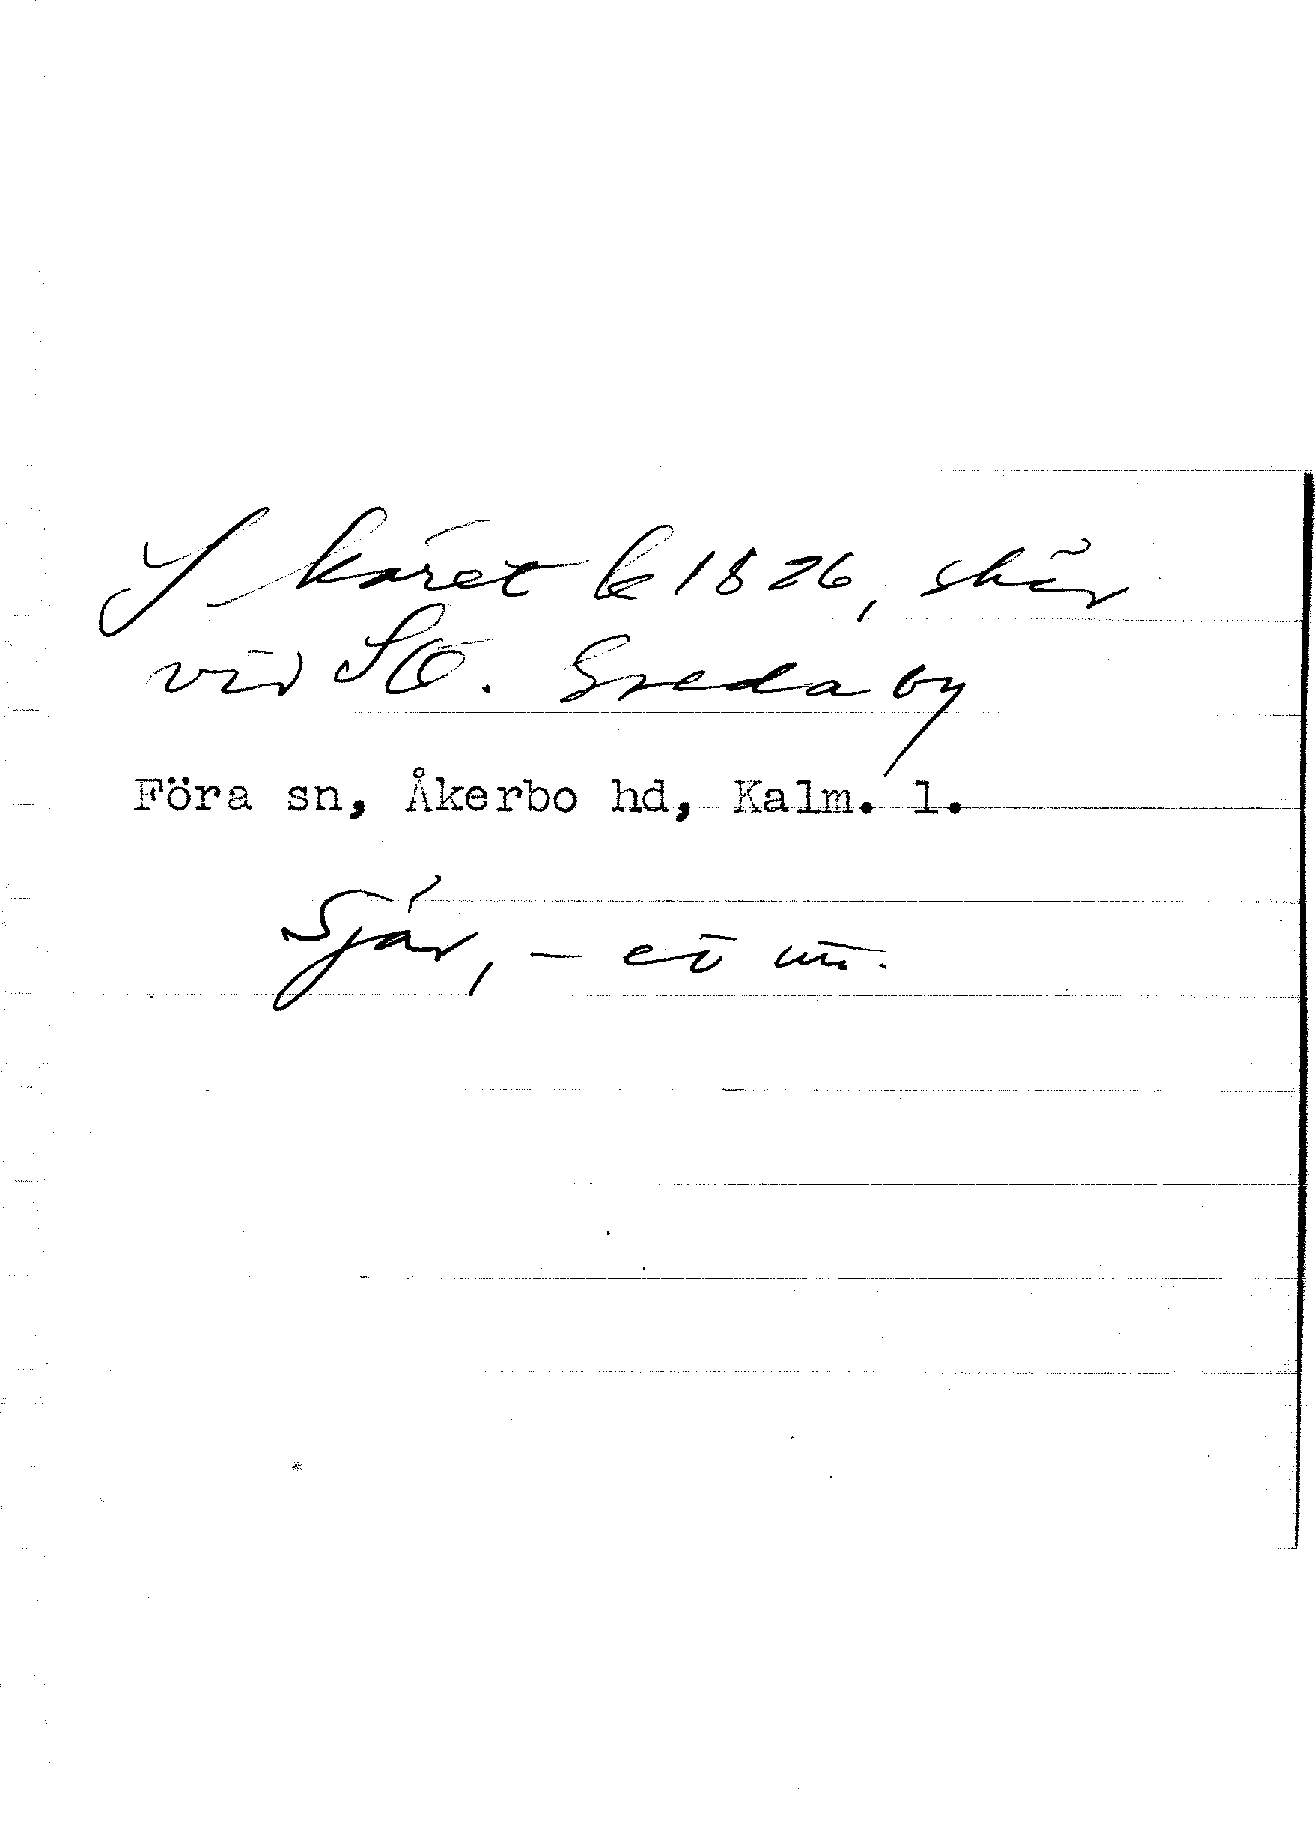 Skäret k 1826, skär
vid SÖ. Greda by
Föra sn, Åkerbo hd, Kalm. l.
Sjär, – et